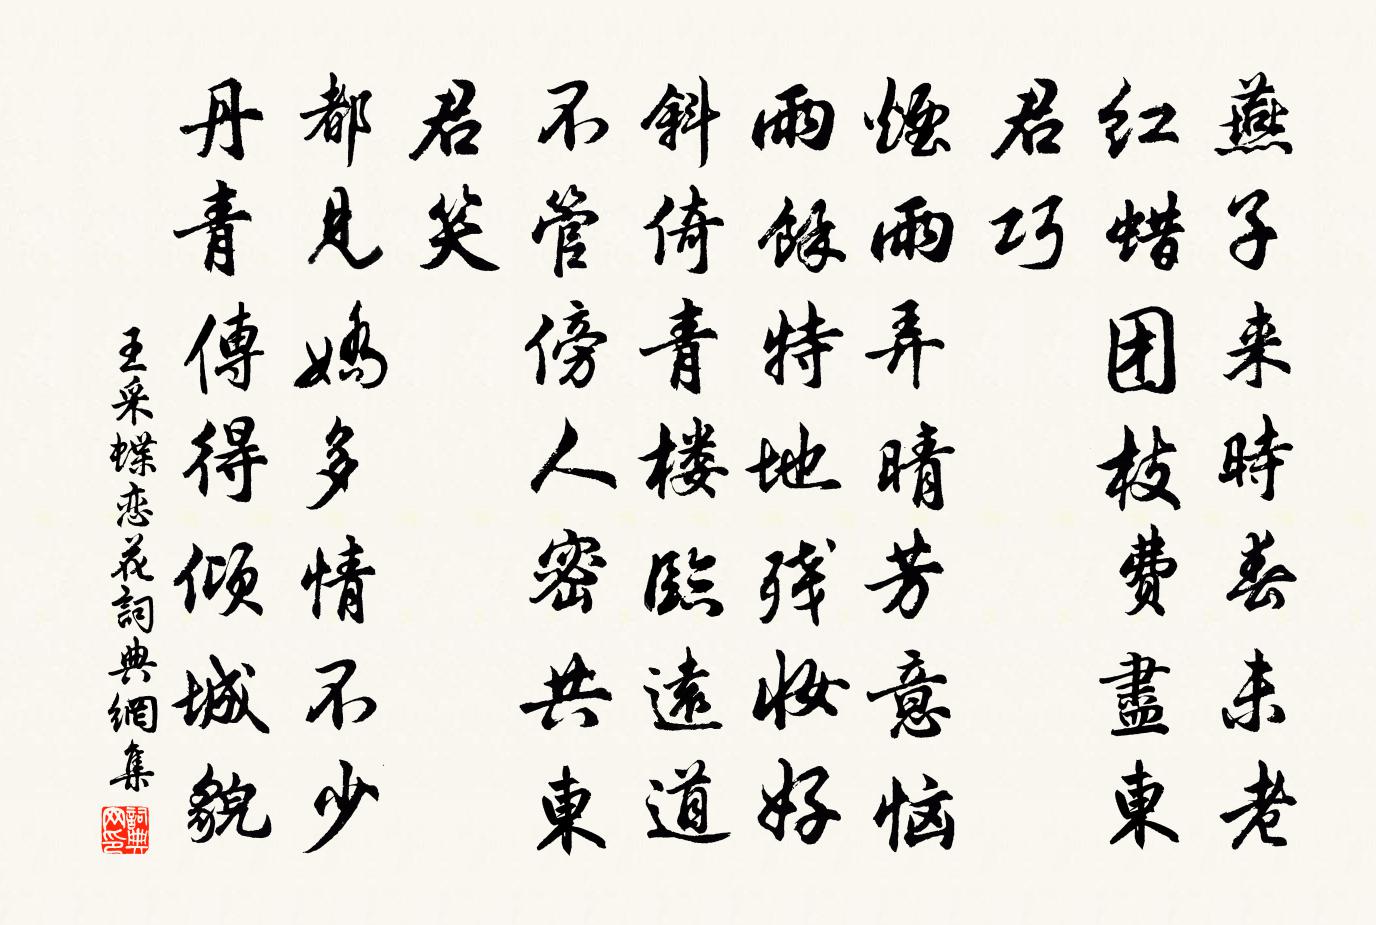 燕子来時春未老
红蜡团枝費盡東
君巧
煙雨弄晴芳意恼
雨餘特地残妆好
斜倚青楼臨遠道
不管傍人密共東
君笑
都見娇多情不少
丹青傳得倾城貌
王采蝶恋花詞典網集
詞典网印